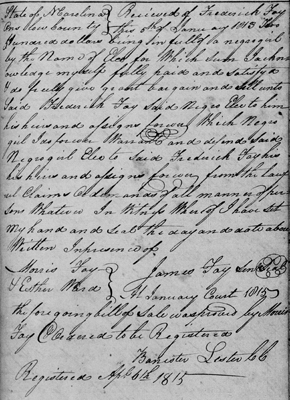 State of N Carolina } Recieved of Frederick Fay
One slow County } this 3d of January 1815 Three
Hundred dollars being in full for a negro girl
by the Name of Cleo for Which sum I acknow
ledge myself fully paid and Satisfyd
I do freely give grant bargain and sell unto
Said Frederick Fay Said Negro Cleo to him
his heirs and assigns forever Which Negro
Girl I do forever Warrant and defend Said
Negro girl Cleo to Said Frederick Fay his
his heirs and assigns forever from the lawful
Claims and demands of all manner of per
Sons Whatever In Witness Whereof I have Set
My hand and Seal the day and date above
Written In presence of
Morris Fay } James Fay Senr
Esther Ward } January Court 1815
the foregoing bill of Sale was proved by Morris
Fay Ordered to be Registered
Banister Lester CC
Registered Apl 6th 1815